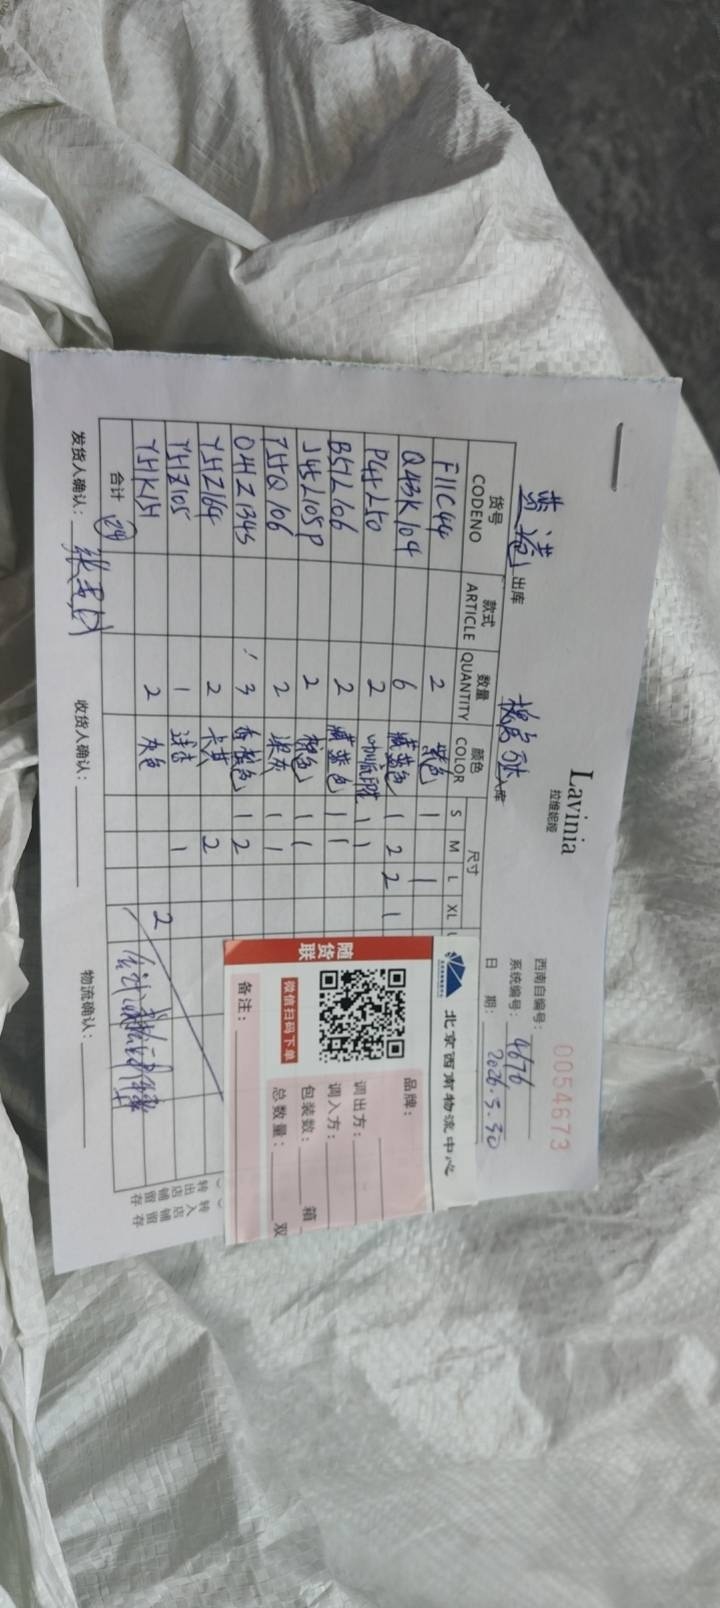 Lavinia
拉维妮娅
0054673
黄港 出库 入库
西南自编号:
系统编号: 4676
日 期: 2026.5.30
货号 款式 数量 颜色 尺寸
CODENO ARTICLE QUANTITY COLOR S M L XL
F11C44 2 紫色 1 1
QA3K104 6 藏蓝色 1 2 2 1
P45L50 2 1 1
B51L106 2 藏蓝色 1 1
J45L105P 2 棕色 1 1
75HQ106 2 深灰 1 1
OH1Z1345 3 香槟色 1 2
YSHZ164 2 卡其 2
YSHZ105 1 1
YSHK151 2 灰色 2
合计 24
发货人确认:
收货人确认:
物流确认:
转出店铺留存
转入店铺留存
北京西南物流中心
随货联
微信扫码下单
品牌:
调出方:
调入方:
包装数: 箱
总数量: 双
备注: